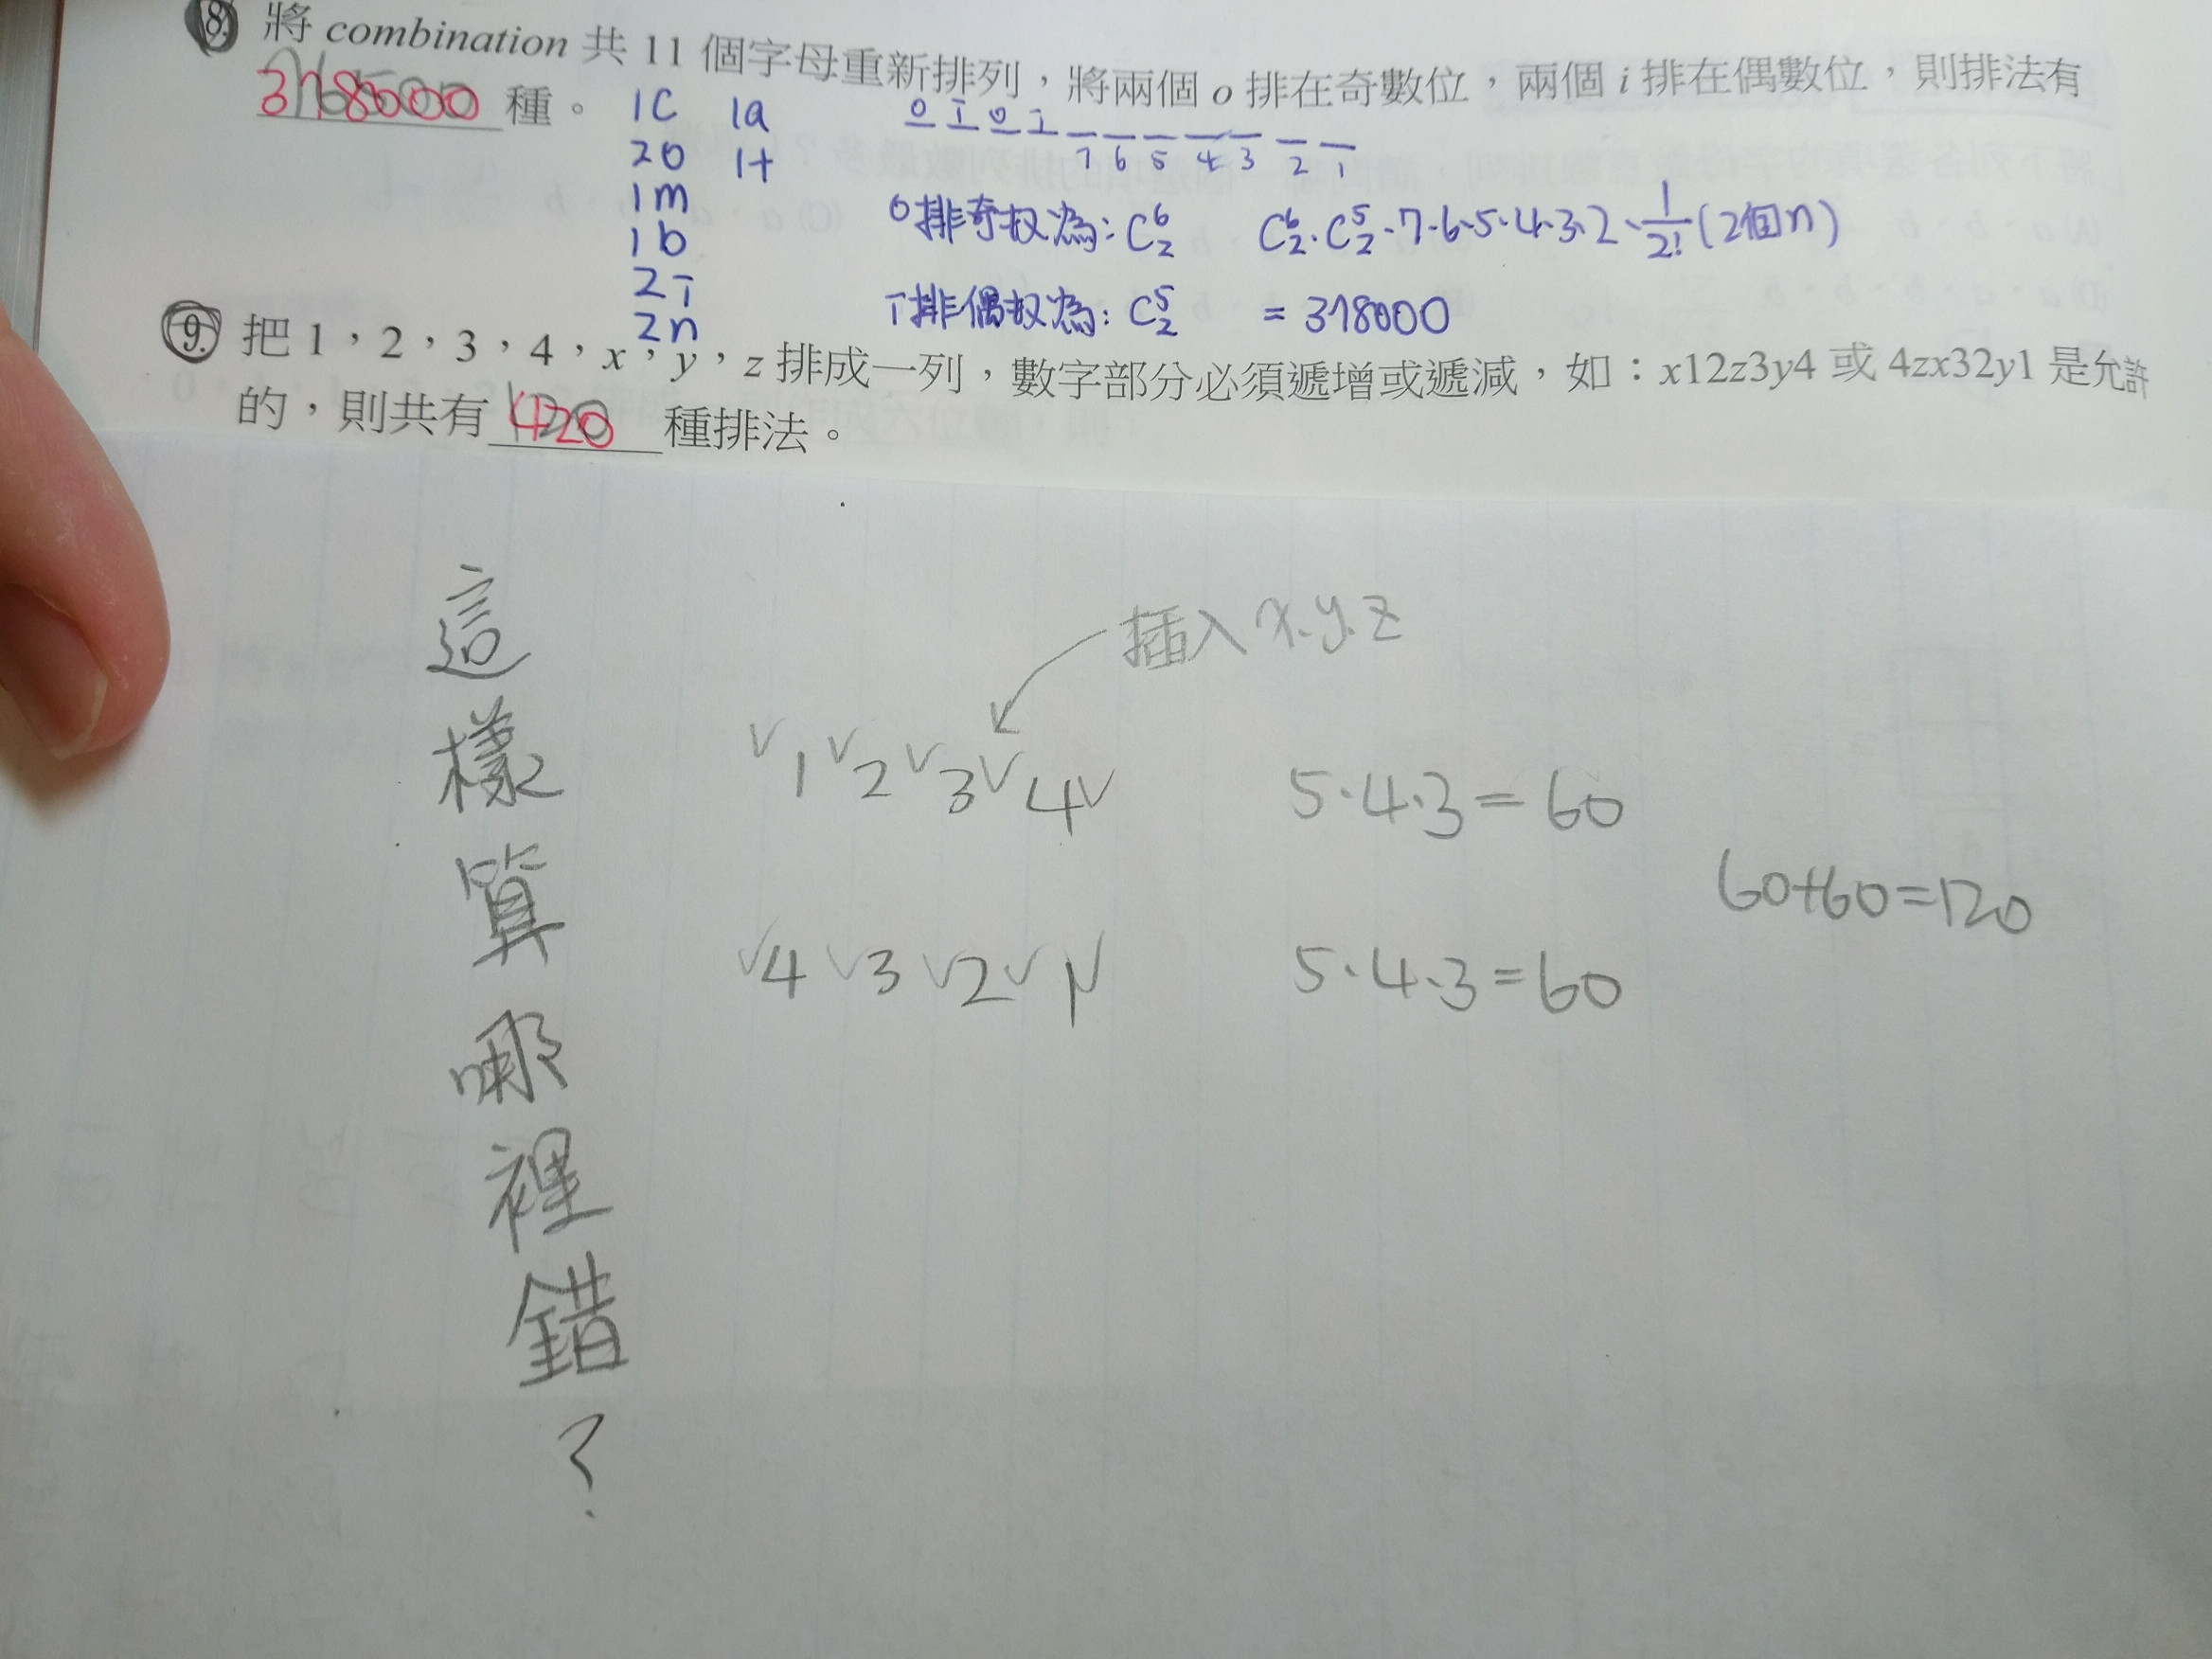 8. 將 combination 共 11 個字母重新排列，將兩個 o 排在奇數位，兩個 i 排在偶數位，則排法有
378000 種。
1C 1a
2o 1t
1m
1b
2i
2n
o i o i
7 6 5 4 3 2 1
o排奇扠為：C⁶₂ C⁶₂·C⁵₂·7·6·5·4·3·2·1/2!(2個n)
i排偶扠為：C⁵₂ = 378000
9. 把 1，2，3，4，x，y，z 排成一列，數字部分必須遞增或遞減，如：x12z3y4 或 4zx32y1 是允許
的，則共有 420 種排法。
這樣算哪裡錯？
插入 x.y.z
∨1∨2∨3∨4∨ 5·4·3=60
60+60=120
∨4∨3∨2∨1∨ 5·4·3=60